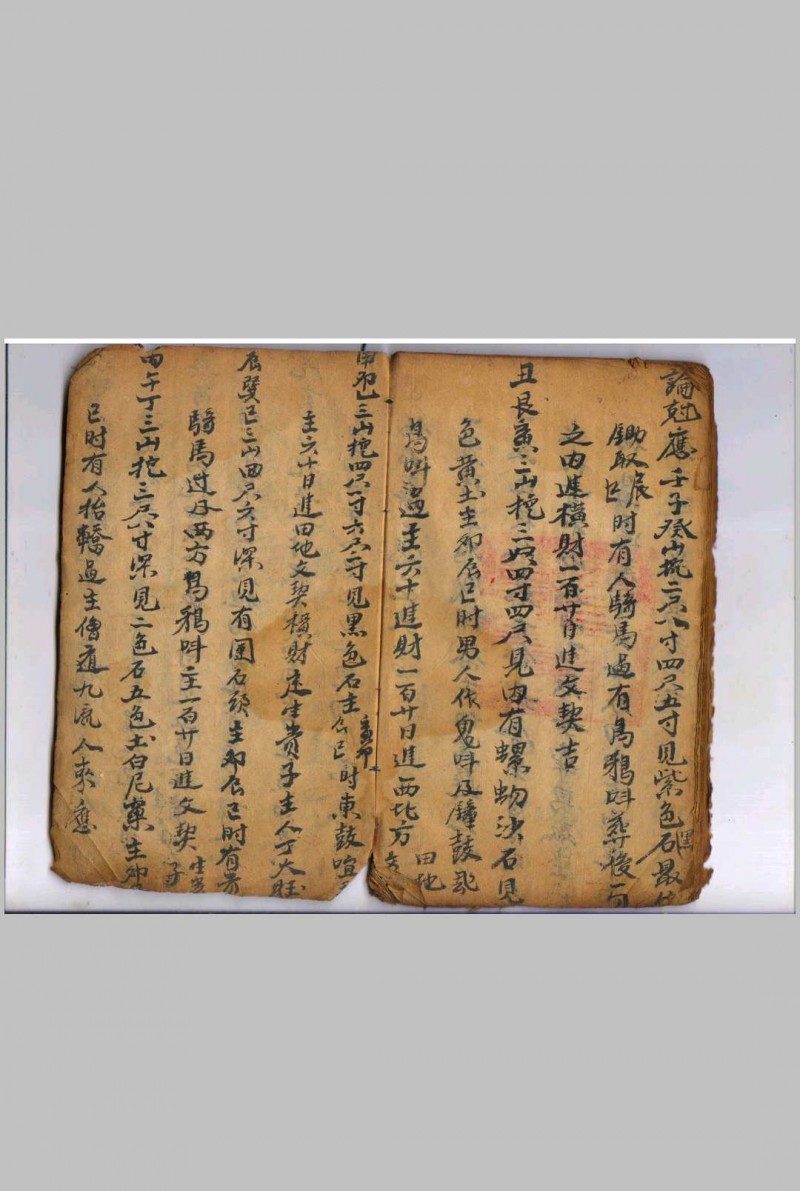 論尅應壬子癸山挖二尺八寸四尺五寸見紫色石黑最
鋤取辰巳時有人騎馬過有烏鴉叫葬後一百
之内進橫財一百廿日進文契吉
丑艮寅三山挖三尺四寸四尺見内有螺蚴沙石見
色黄土主卯辰巳時男人作鬼叫及鐘鼓
鳥叫過主六十進財一百廿日進西北方田地
甲卯乙三山挖四尺一寸六尺二寸見黑色石主寅卯辰巳時東鼓喧
主六十日進田地文契橫財定生貴子主人丁大旺
辰巽巳三山四尺六寸深見有圓石頭主卯辰巳時有
騎馬过及西方烏鴉叫主一百廿日進文契生貴子
丙午丁三山挖三尺八寸深見二色石五色土白尼菓主卯
巳时有人抬轎過主僧道九流人來應